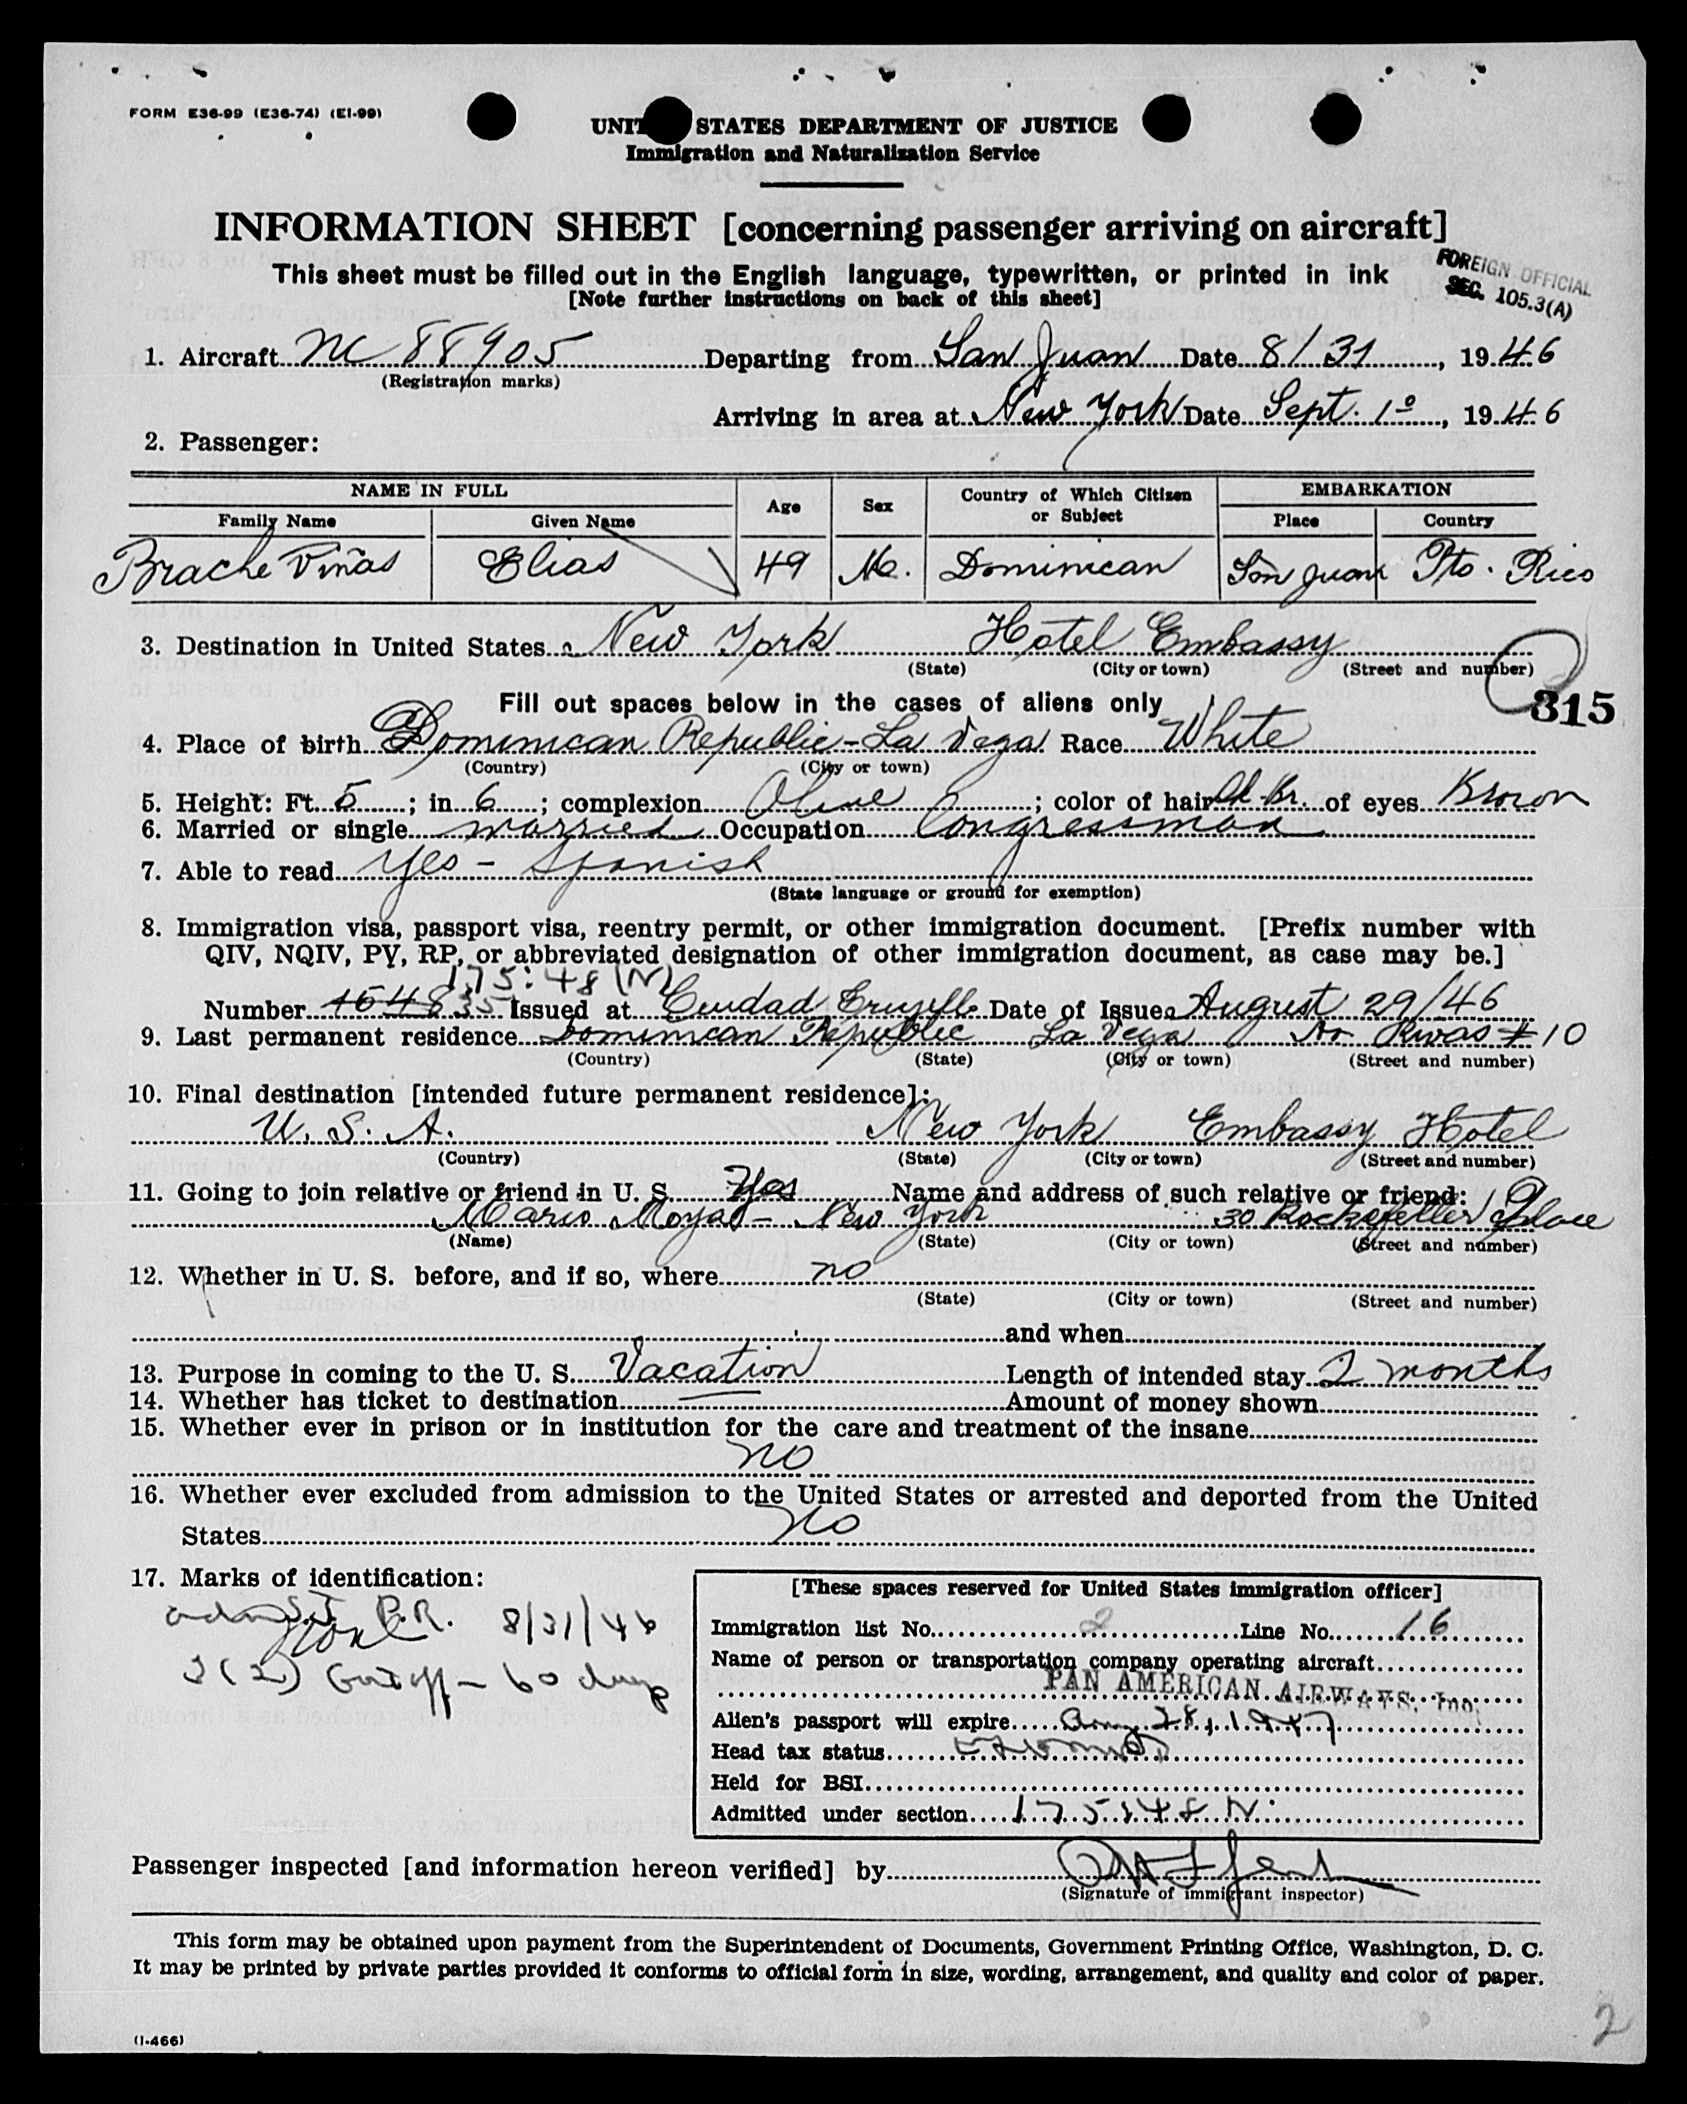 FORM E36-99 (E36-74) (EI-99)
UNIT STATES DEPARTMENT OF JUSTICE
Immigration and Naturalization Service
INFORMATION SHEET [concerning passenger arriving on aircraft]
This sheet must be filled out in the English language, typewritten, or printed in ink
[Note further instructions on back of this sheet]
FOREIGN OFFICIAL
SEC. 105.3(A)
1. Aircraft NC 88905 Departing from San Juan Date 8/31, 1946
(Registration marks)
Arriving in area at New York Date Sept. 1º, 1946
2. Passenger:
NAME IN FULL Age Sex Country of Which Citizen or Subject EMBARKATION
Family Name Given Name Place Country
Brache Viñas Elias 49 M. Dominican San Juan Pto. Rico
3. Destination in United States New York Hotel Embassy
(State) (City or town) (Street and number)
315
Fill out spaces below in the cases of aliens only
4. Place of birth Dominican Republic - La Vega Race White
(Country) (City or town)
5. Height: Ft. 5; in 6; complexion Olive; color of hair Br. of eyes Brown
6. Married or single married Occupation Congressman
7. Able to read Yes - Spanish
(State language or ground for exemption)
8. Immigration visa, passport visa, reentry permit, or other immigration document. [Prefix number with
QIV, NQIV, PV, RP, or abbreviated designation of other immigration document, as case may be.]
175:48 (N)
Number Issued at Ciudad Trujillo Date of Issue August 29/46
9. Last permanent residence Dominican Republic La Vega Rivas #10
(Country) (State) (City or town) (Street and number)
10. Final destination [intended future permanent residece]:
U. S. A. New York Embassy Hotel
(Country) (State) (City or town) (Street and number)
11. Going to join relative or friend in U. S. Yes Name and address of such relative or friend:
Mario Moya - New York 30 Rockefeller Place
(Name) (State) (City or town) (Street and number)
12. Whether in U. S. before, and if so, where no
(State) (City or town) (Street and number)
and when
13. Purpose in coming to the U. S. Vacation Length of intended stay 2 months
14. Whether has ticket to destination — Amount of money shown
15. Whether ever in prison or in institution for the care and treatment of the insane
no
16. Whether ever excluded from admission to the United States or arrested and deported from the United
States no
17. Marks of identification:
P.R. 8/31/46
3(2) 60 days
[These spaces reserved for United States immigration officer]
Immigration list No. 2 Line No. 16
Name of person or transportation company operating aircraft
PAN AMERICAN AIRWAYS, Inc.
Alien's passport will expire Aug. 28, 1947
Head tax status
Held for BSI
Admitted under section 175:48 N
Passenger inspected [and information hereon verified] by
(Signature of immigrant inspector)
This form may be obtained upon payment from the Superintendent of Documents, Government Printing Office, Washington, D. C.
It may be printed by private parties provided it conforms to official form in size, wording, arrangement, and quality and color of paper.
(I-466)
2